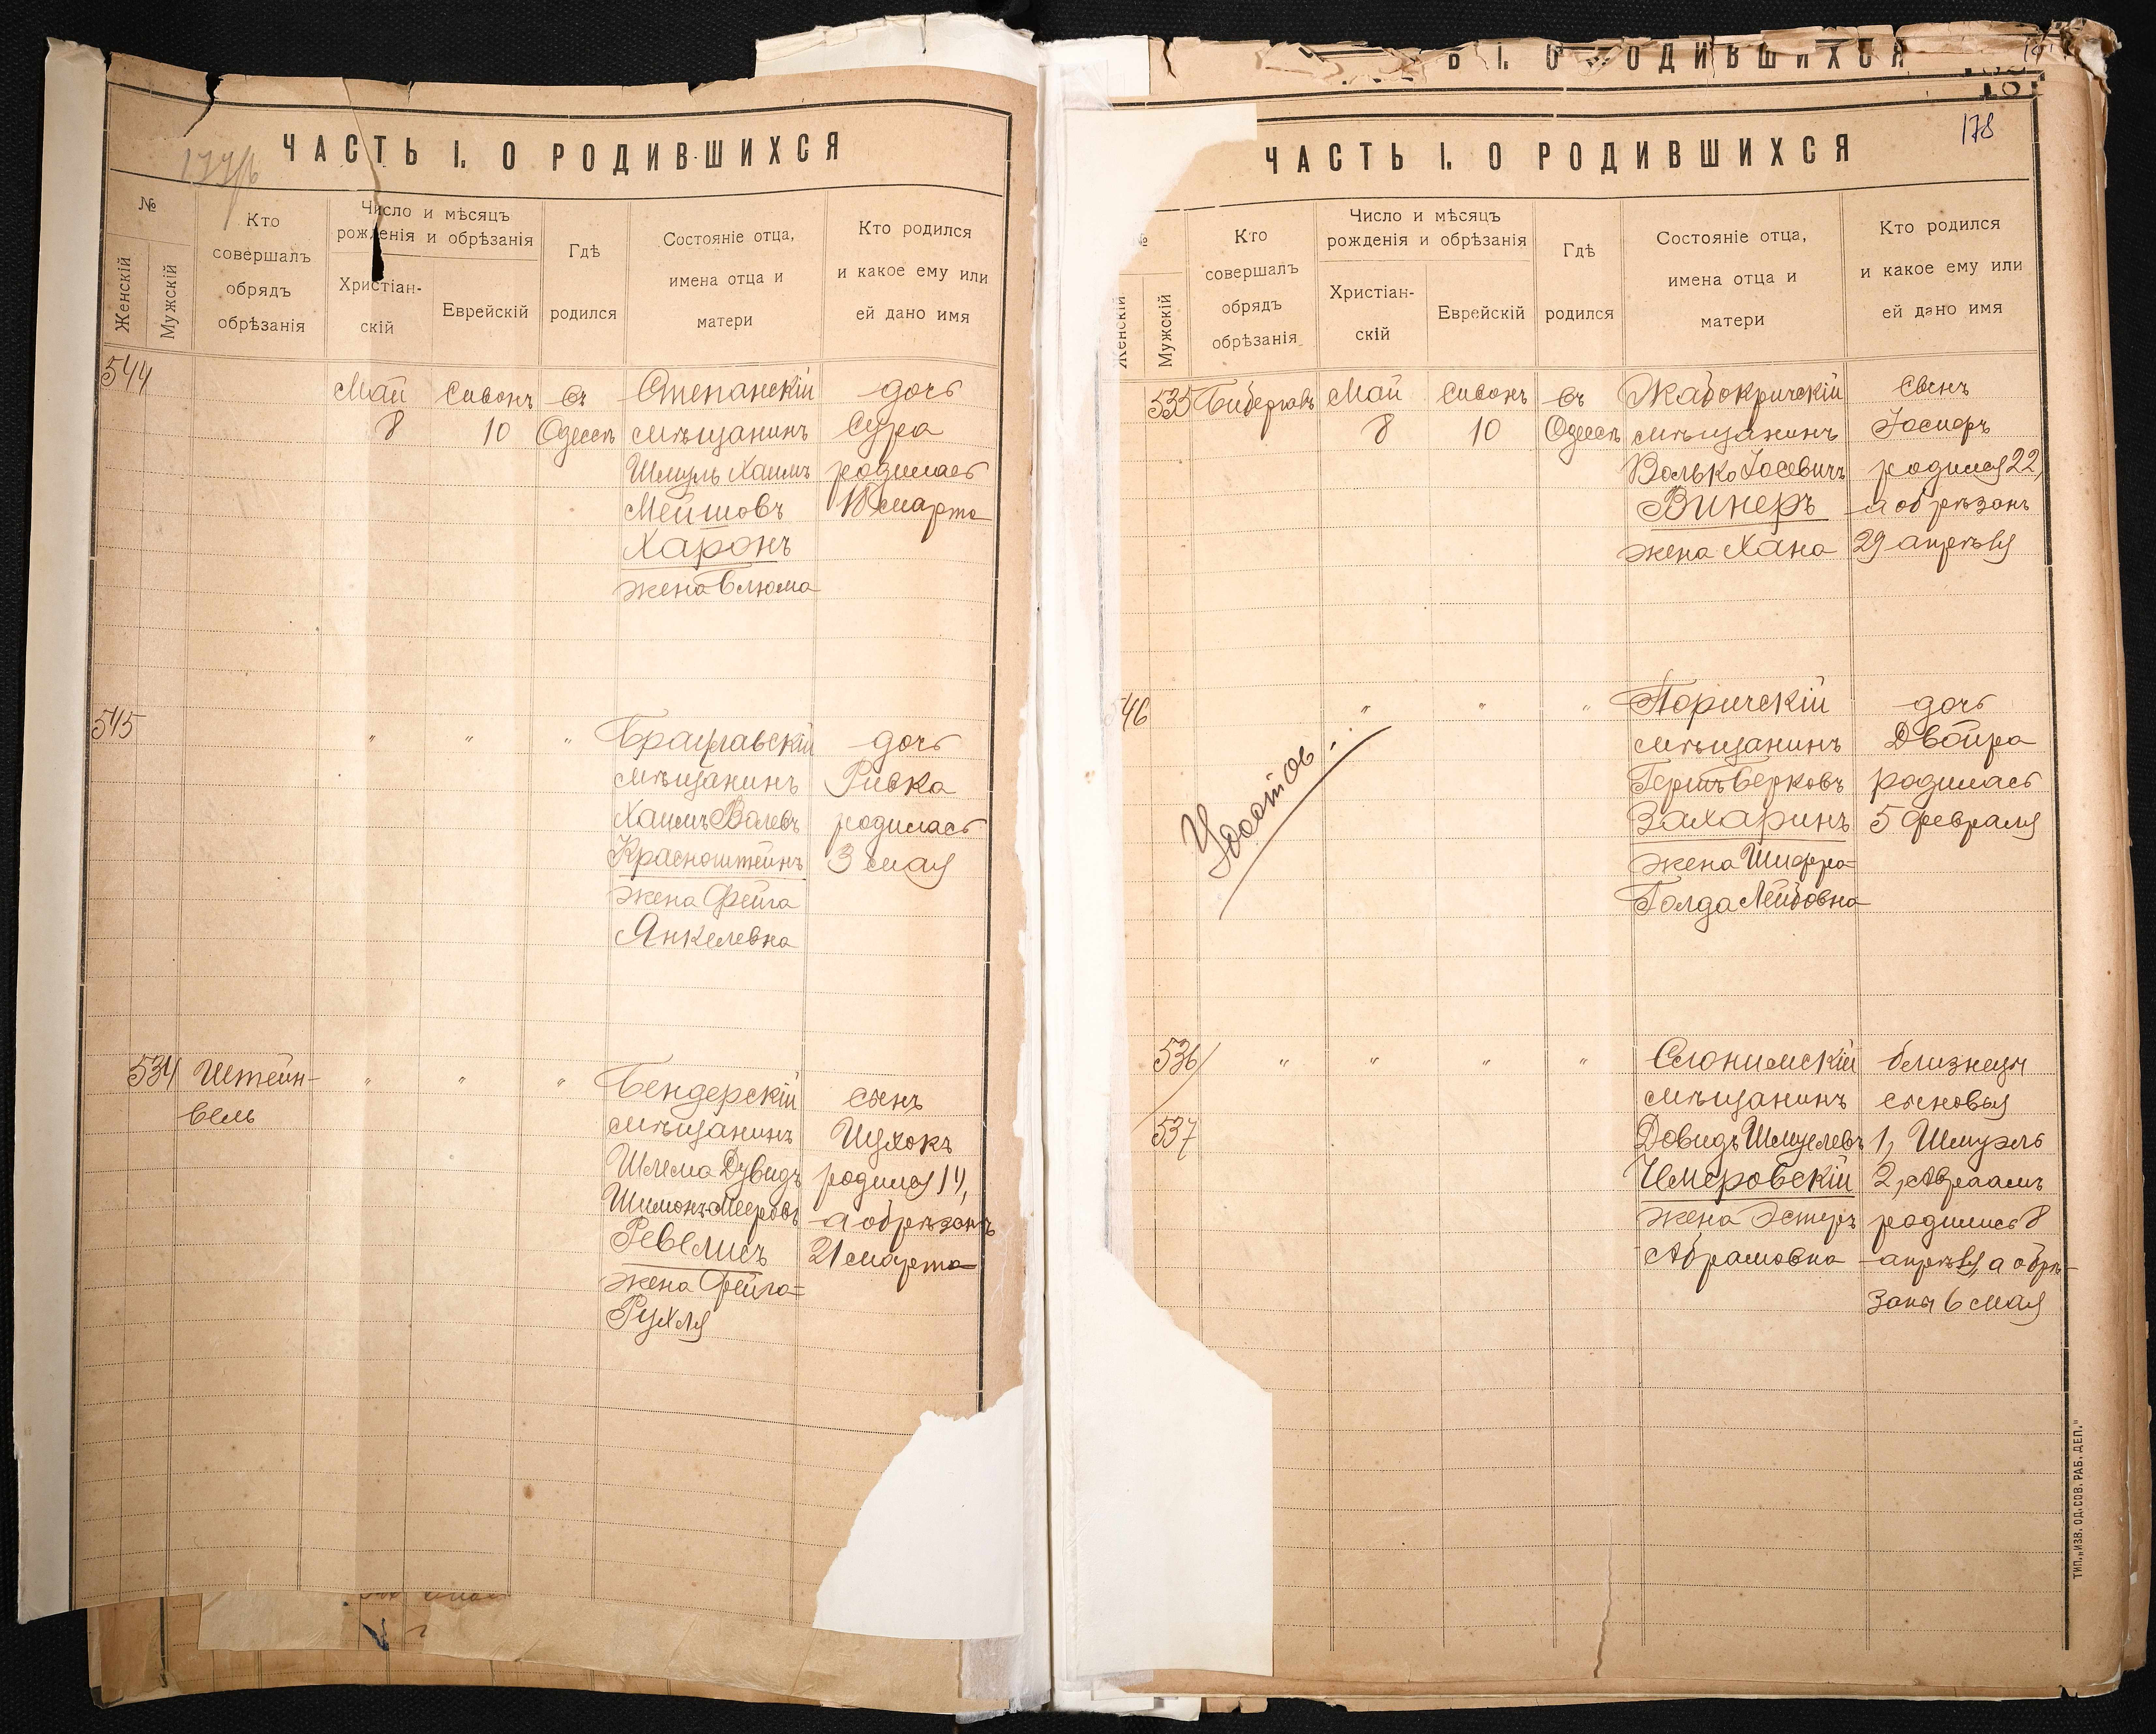 ЧАСТЬ I. О РОДИВШИХСЯ
№
Женскій
Мужскій
Кто совершалъ обрядъ обрѣзанія
Число и мѣсяцъ рожденія и обрѣзанія
Христіан-скій
Еврейскій
Гдѣ родился
Состояніе отца, имена отца и матери
Кто родился и какое ему или ей дано имя
544
Май Сивонъ въ Степанскій дочь
8 10 Одессѣ мѣщанинъ Сура
Шмуль Хаимъ родилась
Мейшовъ 18 марта
Харонъ
жена Блюма
545
" " " Брацлавскій дочь
мѣщанинъ Ривка
Хаимъ Волевъ родилась
Красноштейнъ 3 мая
жена Фейга
Янкелевна
534 Штейн- " " " Бендерскій сынъ
вель мѣщанинъ Ицхокъ
Шлема Дувидъ родился 14,
Шимонъ Мееровъ а обрѣзанъ
Ревелисъ 21 марта
жена Фейга=
Рухля
Ь I. О РОДИВШИХСЯ
178
ЧАСТЬ I. О РОДИВШИХСЯ
№
Женскій
Мужскій
Кто совершалъ обрядъ обрѣзанія
Число и мѣсяцъ рожденія и обрѣзанія
Христіан-скій
Еврейскій
Гдѣ родился
Состояніе отца, имена отца и матери
Кто родился и какое ему или ей дано имя
535 Бибергалъ Май Сивонъ въ Жабокричскій сынъ
8 10 Одессѣ мѣщанинъ Іосифъ
Волько Іосевичъ родился 22,
Винеръ а обрѣзанъ
жена Хана 29 апрѣля
546 " " " Паричскій дочь
мѣщанинъ Двойра
Гершъ Берковъ родилась
Захаринъ 5 февраля
жена Шифра=
Голда Лейбовна
536/ " " " " Слонимскій близнецы
мѣщанинъ сыновья
537 Довидъ Шмуелевъ 1, Шмуэль
Чмеровскій 2, Авраамъ
жена Эстеръ родились 8
Абрамовна апрѣля, а обрѣ-
заны 6 мая
ТИП. „ИЗВ. ОД. СОВ. РАБ. ДЕП."